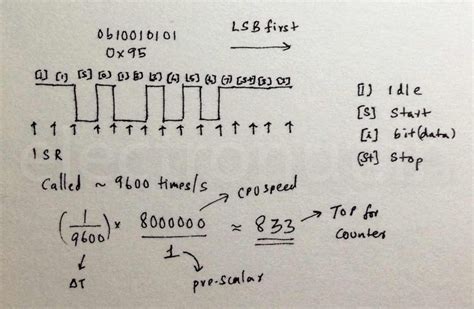 0b10010101
0x95
LSB first
[I] [I] [S] [0] [1] [2] [3] [4] [5] [6] [7] [St] [I] [I]
[I] Idle
[S] Start
[i] bit(data)
[St] Stop
ISR
Called ~ 9600 times/s
(1/9600) * 8000000/1 ≈ 833
CPU speed
TOP for counter
ΔT
pre-scalar